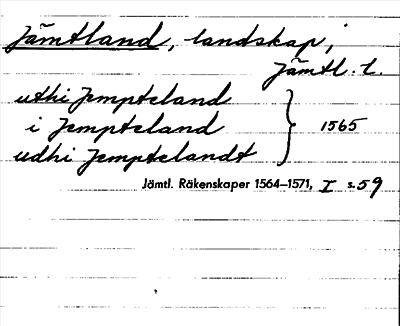 Jämtland, landskap,
Jämtl. l.
uthi Jempteland
i Jempteland } 1565
udhi Jemptelandt
Jämtl. Räkenskaper 1564–1571, I s. 59